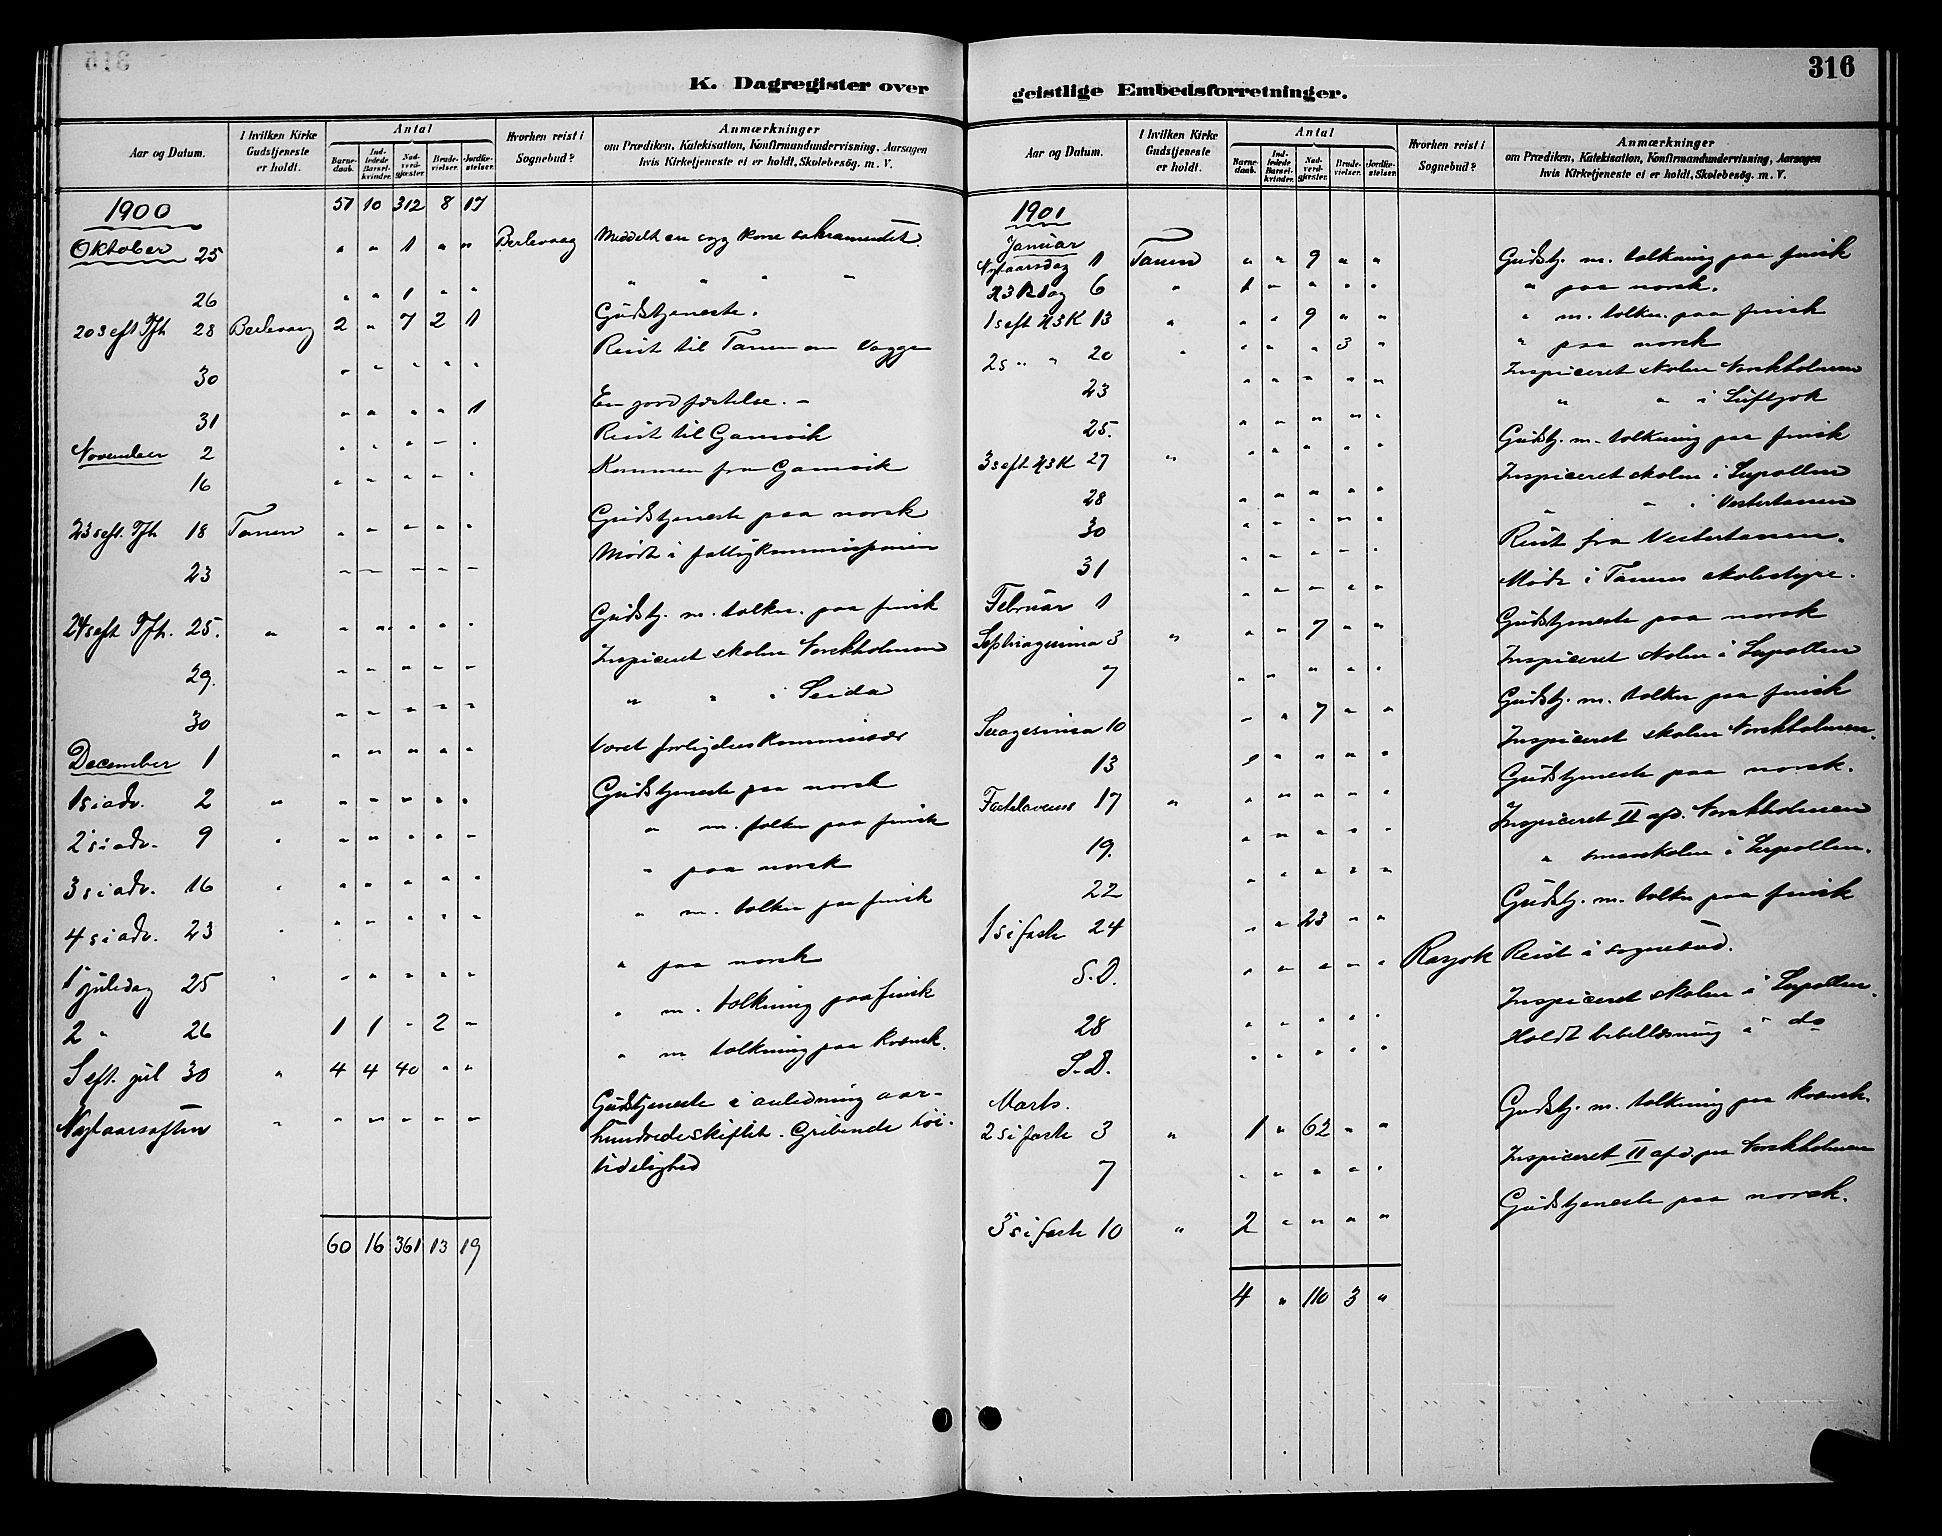 315
K. Dagregister over
Aar og Datum. I hvilken Kirke Gudstjeneste er holdt. Antal Barnedaab. Indledede Barselkvinder. Nadverdgjæster. Brudevielser. Jordfæstelser. Hvorhen reist i Sognebud? Anmærkninger om Prædiken, Katekisation, Konfirmandundervisning, Aarsagen hvis Kirketjeneste ei er holdt, Skolebesög. m. V.
1900 51 10 312 8 17
Oktober 25 " " 1 " " Berlevaag Meddelt en syg kone sakramentet.
26 " " 1 " " " " " "
20 s eft Tfh 28 Berlevaag 2 " 7 2 1 Gudstjeneste.
30 " " " " " Reist til Tanen om Vagge
31 " " " " 1 En jordfæstelse. -
November 2 " " " " " Reist til Gamvik
16 " " " " " Kommen fra Gamvik
23 s eft. Tfh 18 Tanen " " " " " Gudstjeneste paa norsk
23 " " " " " Møde i fattigkommissionen
24 s eft Tfh. 25. " " " " " " Gudstj. m. tolkn. paa finsk
29. " " " " " Inspiceret skolen Norskholmen
30 " " " " " " " i Seida
December 1 " " " " " Været forligelseskommissær
1 s i adv. 2 " " " " " " Gudstjeneste paa norsk
2 s i adv. 9 " " " " " " " m. tolkn paa finsk
3 s i adv. 16 " " " " " " " paa norsk
4 s i adv. 23 " " " " " " " m. tolkn paa finsk
1 juledag 25 " " " " " " " paa norsk
2 " 26 1 1 " 2 " " m. tolkning paa finsk
S eft. jul 30 " 4 4 40 " " " m tolkning paa kvænsk.
Nytaarsaften " " " " " " Gudstjeneste i anledning aar-
hundredeskiftet. Gribende höi-
tidelighed
60 16 361 13 19
316
geistlige Embedsforretninger.
Aar og Datum. I hvilken Kirke Gudstjeneste er holdt. Antal Barnedaab. Indledede Barselkvinder. Nadverdgjæster. Brudevielser. Jordfæstelser. Hvorhen reist i Sognebud? Anmærkninger om Prædiken, Katekisation, Konfirmandundervisning, Aarsagen hvis Kirketjeneste ei er holdt, Skolebesög. m. V.
1901
Januar
Nytaarsdag 1 Tanen " " 9 " " Gudstj. m. tolkning paa finsk
H3K dag 6 " 1 " " " " " paa norsk.
1 s eft H3K 13 " " " 9 " " " m. tolkn. paa finsk
2 s " " 20 " " " " 3 " " paa norsk
23 " " " " " Inspiceret skolen Norskholmen
25. " " " " " " " i Luftjok
3 s eft H3K 27 " " " " " " Gudstj. m. tolkning paa finsk
28 " " " " " Inspiceret skolen i Leirpollen
30 " " " " " " " i Vestertanen
31 " " " " " Reist fra Vestertanen.
Februar 1 " " " " " Møde i Tanens skolestyre.
Septuagesima 3 " " " 7 " " Gudstjeneste paa norsk
7 " " " " " Inspiceret skolen i Leirpollen
Sexagesima 10 " " 7 " " Gudstj. m. tolkn paa finsk
13 " " " " " Inspiceret skolen Norskholmen.
Fastelavens 17 " " " " " " Gudstjeneste paa norsk.
19. " " " " " Inspiceret II afd. Norskholmen
22 " " " " " " smaaskolen i Leirpollen.
1 s i faste 24 " " 23 " " Gudstj. m. tolkn paa finsk
S.D. " " " " " Rasjok Reist i sognebud.
28 " " " " " Inspiceret skolen i Leirpollen.
S.D. " " " " " Holdt bibellæsning i do
Marts.
2 s i faste 3 " 1 " 62 " " Gudstj. m. tolkning paa kvænsk.
7 " " " " " Inspiceret II afd. paa Norskholmen
3 s i faste 10 " 2 " " " " Gudstjeneste paa norsk.
4 " 110 3 "